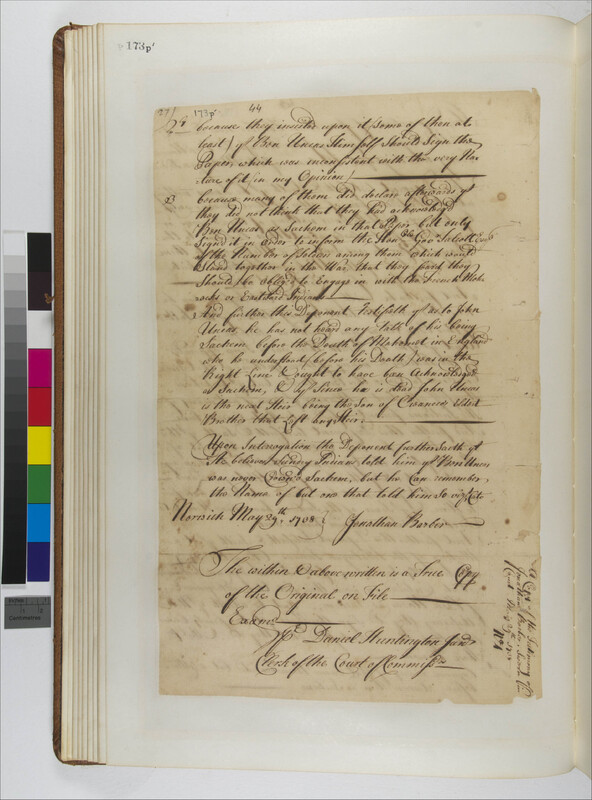 173p¹
173p¹
44
because they insisted upon it (some of them at
least) yt Ben Uncas Himself Should Sign the
Paper, which was inconsistent with the very Na
ture of it in my Opinion)
3
because many of them did declare afterwards yt
they did not think that they had acknowledgd
Ben Uncas as Sachem in that Paper but only
Signd it in order to inform the Honble Govr Talcott Esqr
of the Number of Indians among them which would
Stand together in the War, that they feard they
Should be oblig'd to Engage in with the French Moha
wks or Eastward Indians
And further this Deponent Testifieth yt as to John
Uncas, he has not heard any Talk of his being
Sachem before the Death of Mahomet in England
who he understand (before his Death) was in the
Right Line & ought to have been Acknowledgd
as Sachem, & yt Since he is dead John Uncas
is the next Heir being the Son of Owaneco's Eldest
Brother that Left any Heir
Upon Interrogation the Deponent further Saeth yt
He believes Sundry Indians told him yt Ben Uncas
was never Crown'd Sachem, but he Can remember
the Name of but one that told him So viz
Norwich May 29th 1738
Jonathan Barber
The within & above written is a True Copy
of the Original on File
Examd
Pr Daniel Huntington Junr
Clerk of the Court of Commissrs
Copy of the Testimony of
Jonathan Barber Sworn in
Court May 29th 1738
No 8